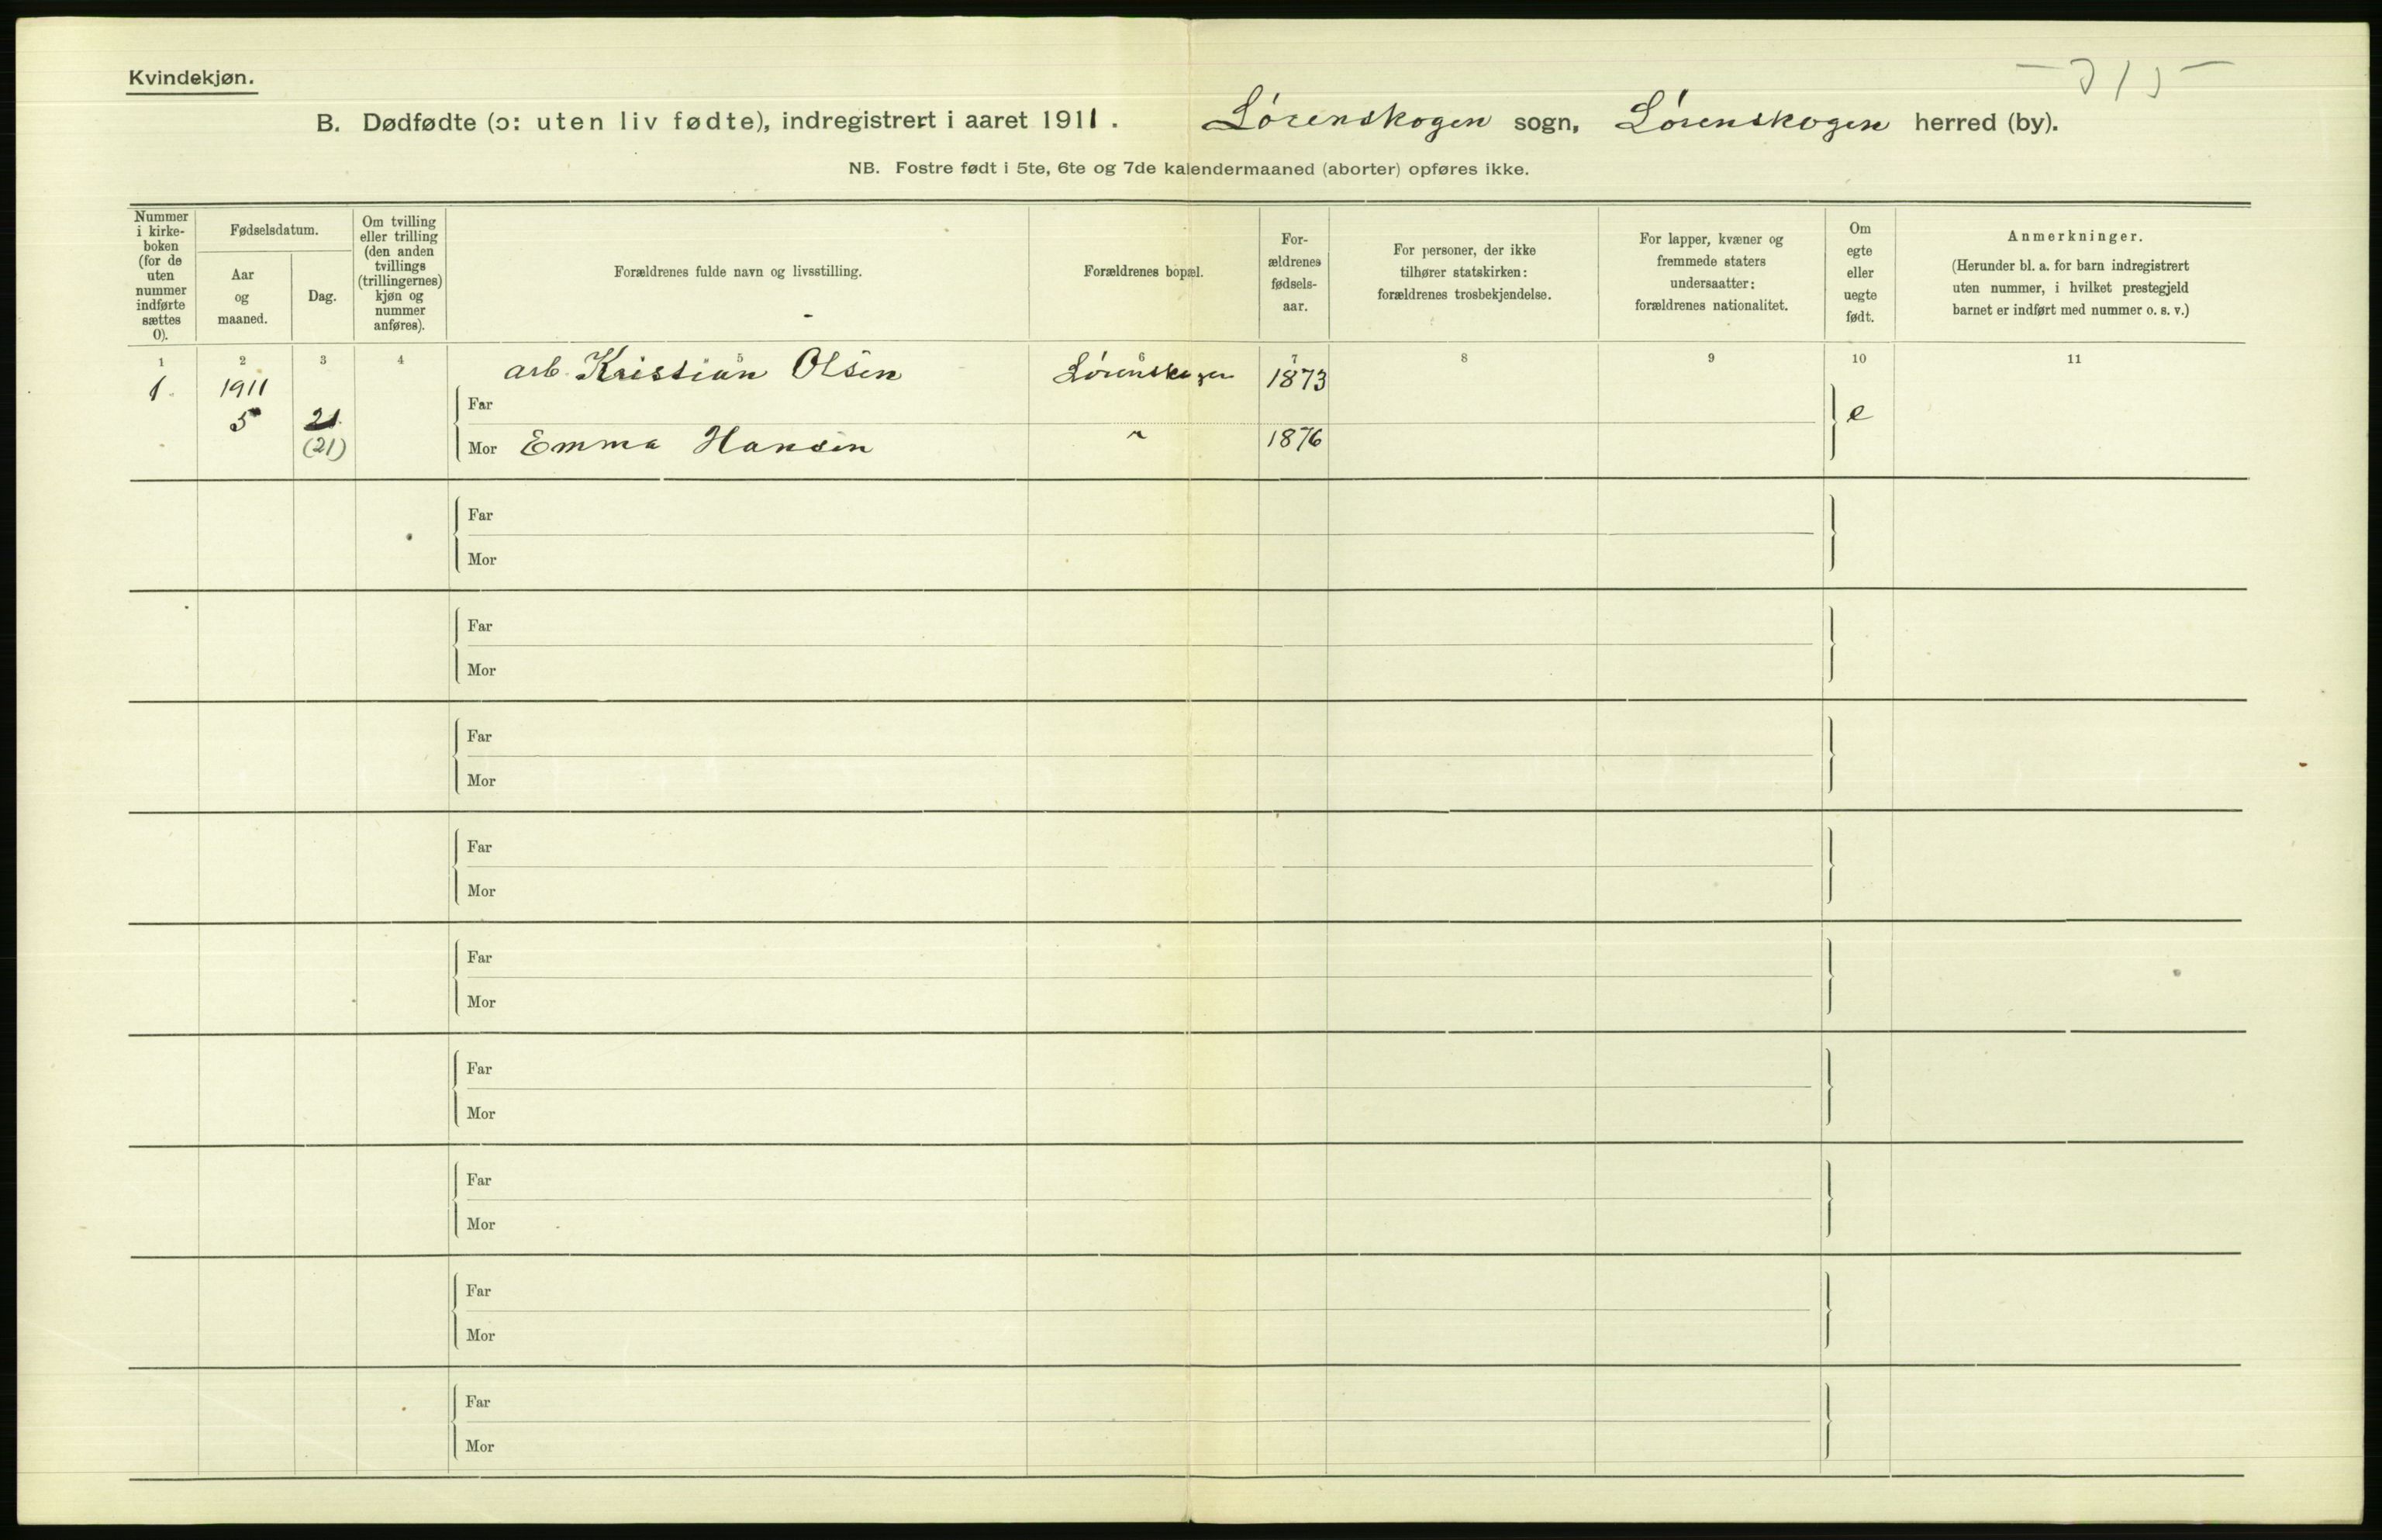 Kvindekjøn.
B. Dødfødte (ɔ: uten liv fødte), indregistrert i aaret 1911. Lørenskogen sogn, Lørenskogen herred (by).
NB. Fostre født i 5te, 6te og 7de kalendermaaned (aborter) opføres ikke.
Nummer
i kirke-
boken
(for de
uten
nummer
indførte
sættes
0).
Fødselsdatum.
Aar
og
maaned.
Dag.
Om tvilling
eller trilling
(den anden
tvillings
(trillingernes)
kjøn og
nummer
anføres).
Forældrenes fulde navn og livsstilling.
Forældrenes bopæl.
For-
ældrenes
fødsels-
aar.
For personer, der ikke
tilhører statskirken:
forældrenes trosbekjendelse.
For lapper, kvæner og
fremmede staters
undersaatter:
forældrenes nationalitet.
Om
egte
eller
uegte
født.
Anmerkninger.
(Herunder bl. a. for barn indregistrert
uten nummer, i hvilket prestegjeld
barnet er indført med nummer o. s. v.)
1 2 3 4 5 6 7 8 9 10 11
1. 1911 arb. Kristian Olsen Lørenskogen 1873
Far
5 21. e
(21) Mor Emma Hansen " 1876
Far
Mor
Far
Mor
Far
Mor
Far
Mor
Far
Mor
Far
Mor
Far
Mor
Far
Mor
Far
Mor